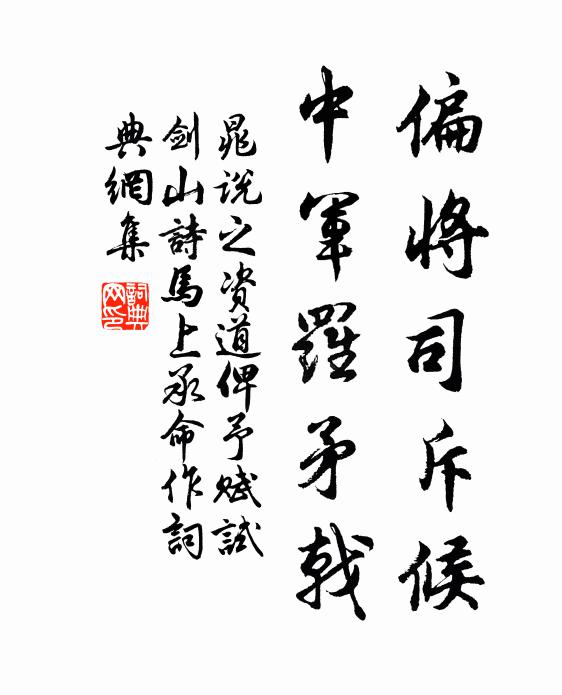 偏将司斥候
中軍羅矛戟
晁説之资道俾予赋試
剑山詩馬上承命作詞
典網集
詞典网印